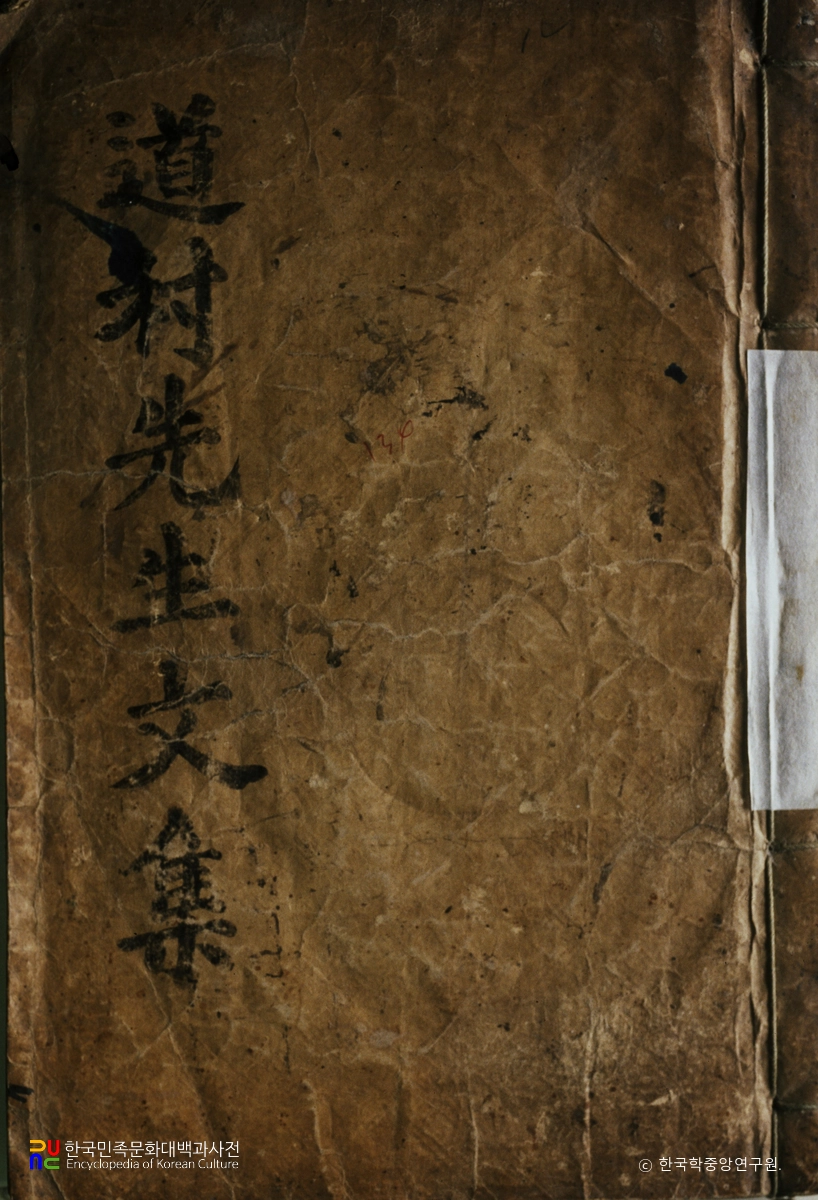 道村先生文集
134
한국민족문화대백과사전
Encyclopedia of Korean Culture
ⓒ 한국학중앙연구원.